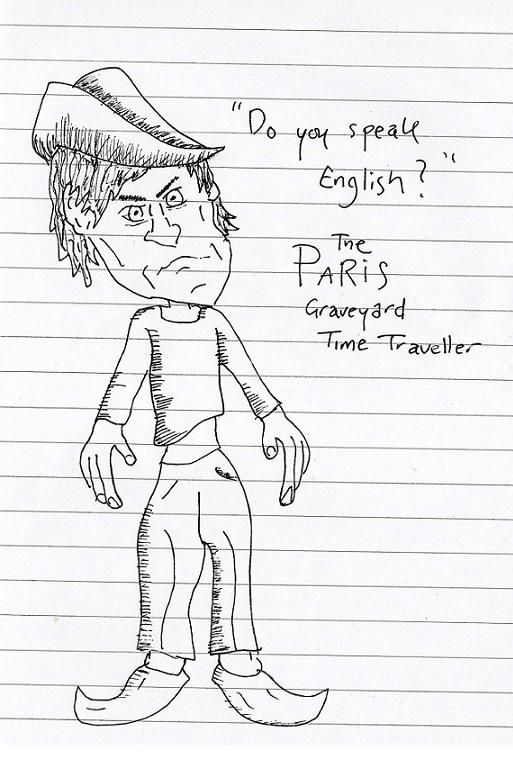 "Do you speak
English?"
The
PARiS
Graveyard
Time Traveller